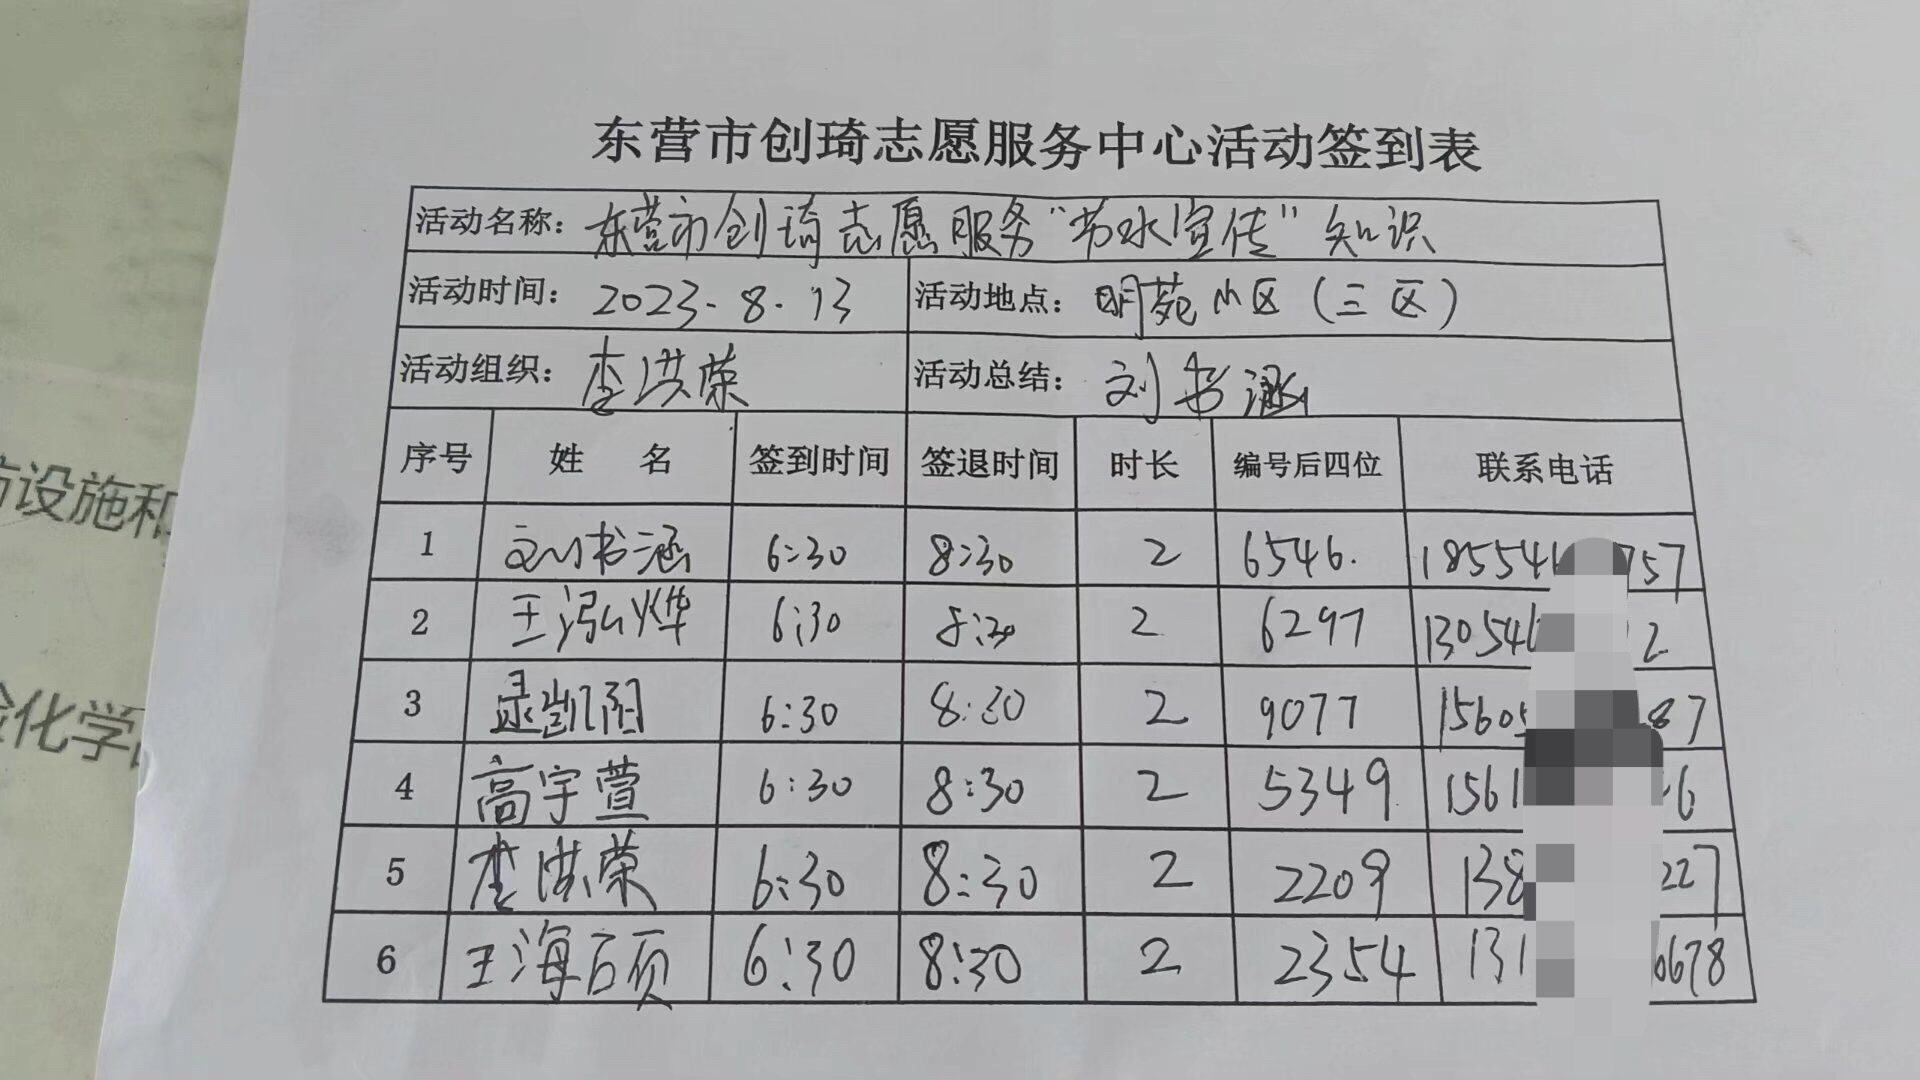 东营市创琦志愿服务中心活动签到表
活动名称：东营市创琦志愿服务“节水宣传”知识
活动时间：2023.8.13 活动地点：明苑小区（三区）
活动组织：李洪荣 活动总结：刘书涵
序号 姓 名 签到时间 签退时间 时长 编号后四位 联系电话
1 刘书涵 6:30 8:30 2 6546. 18554 757
2 王泓烨 6:30 8:30 2 6297 13054 2
3 凯阳 6:30 8:30 2 9077 1560 87
4 高宇萱 6:30 8:30 2 5349 1561 6
5 李洪荣 6:30 8:30 2 2209 138 227
6 王海硕 6:30 8:30 2 2354 131 6678
设施和
化学